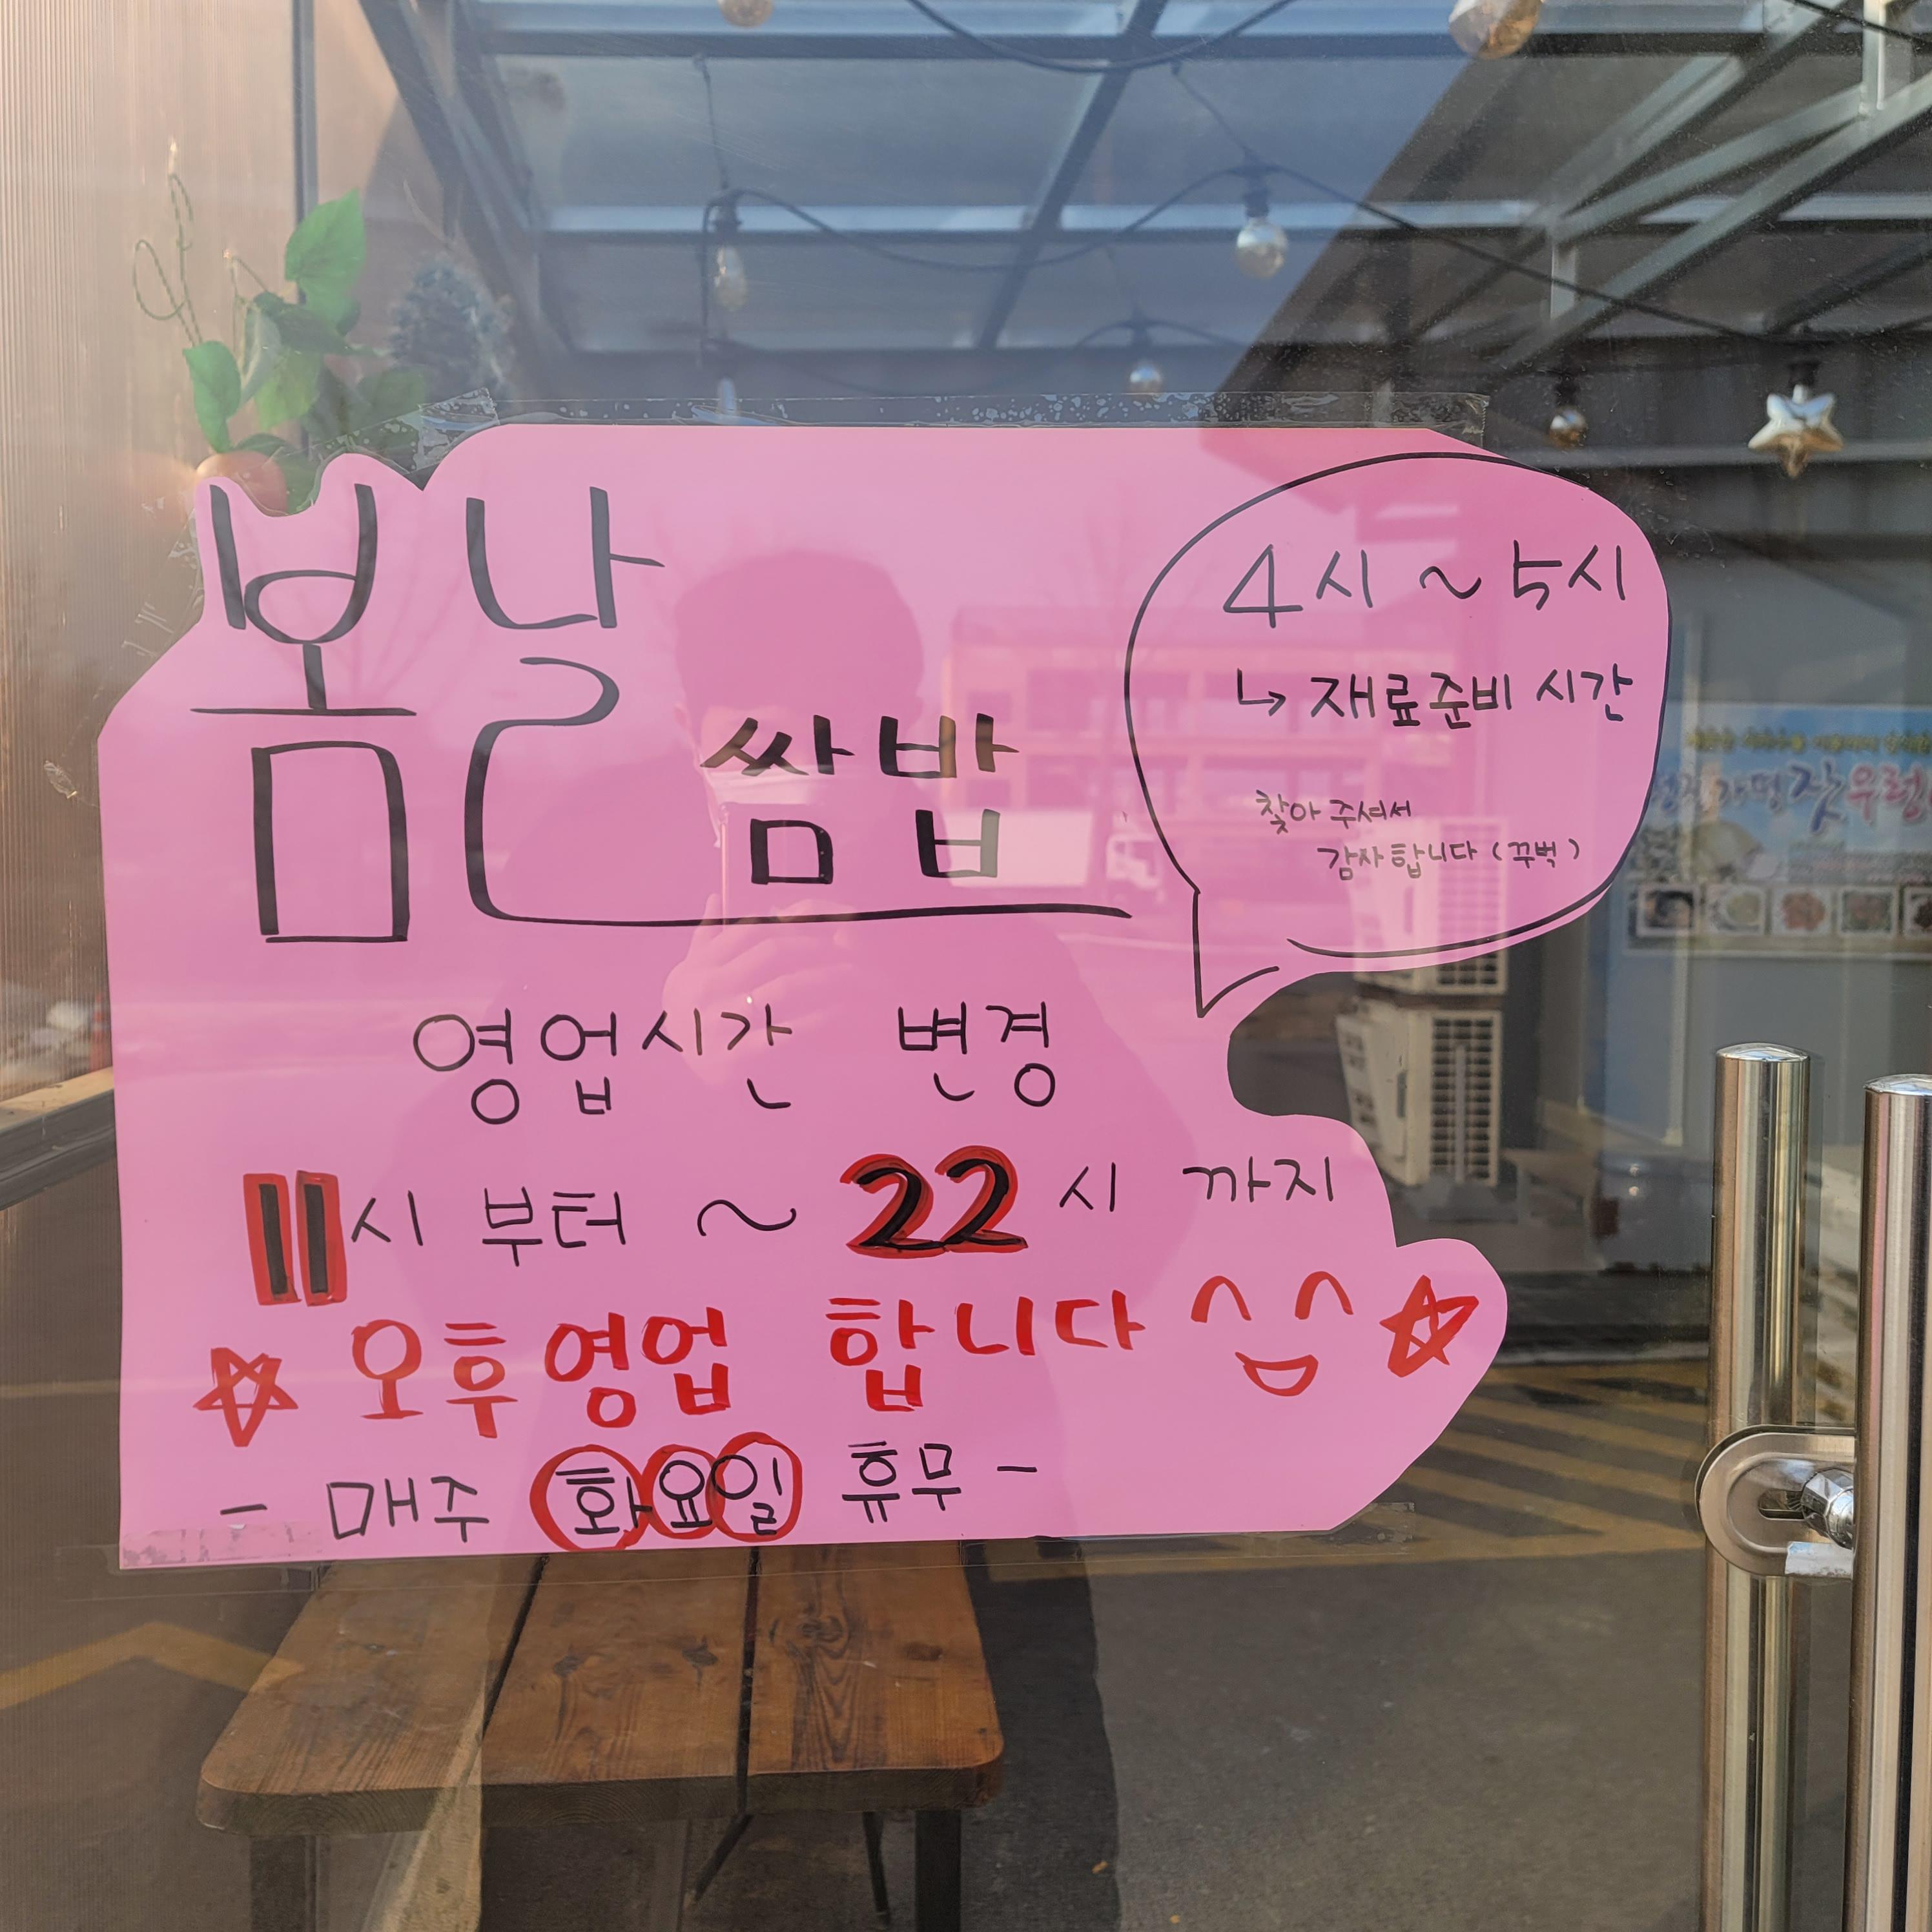 봄날
쌈밥
4시 ~ 5시
↳ 재료준비 시간
찾아 주셔서
감사합니다 (꾸벅)
영업시간 변경
11시 부터 ~ 22시 까지
☆ 오후영업 합니다 ☆
- 매주 화요일 휴무 -